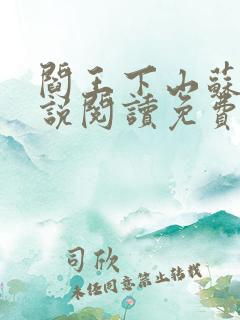 閻王下山蘇
說閱讀免費
司欣
未经同意禁止转载